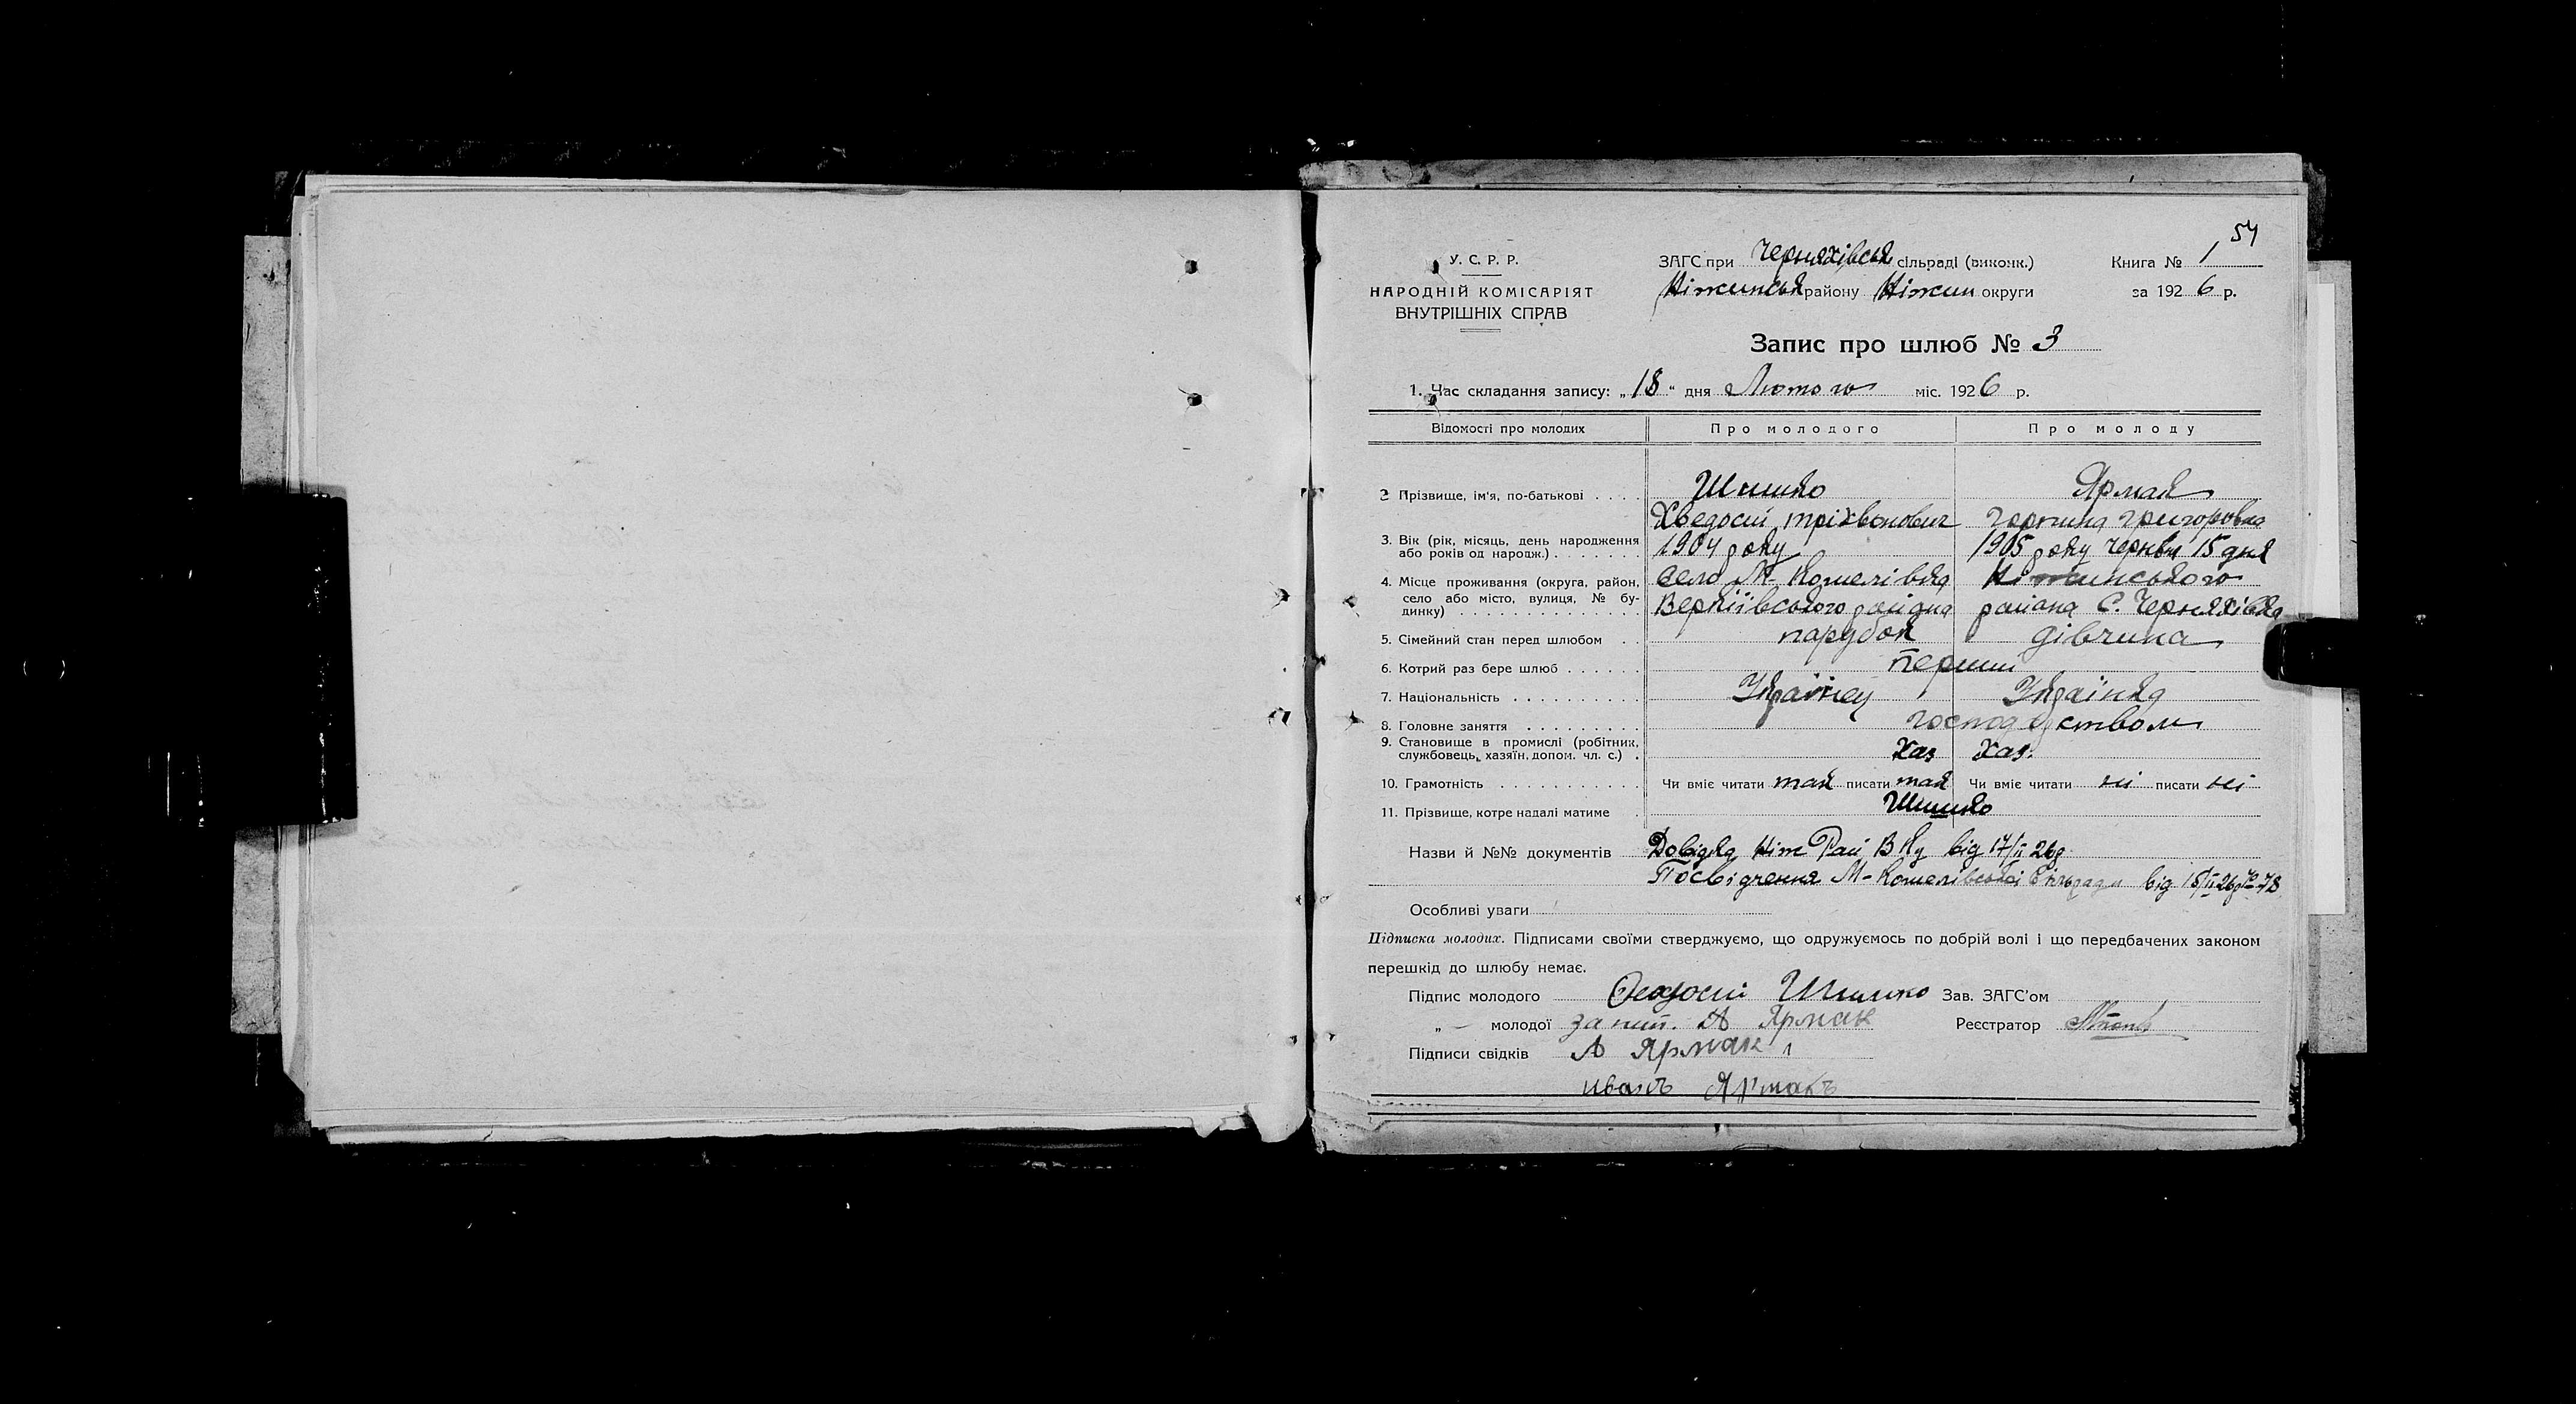 54
У. С. Р. Р.
НАРОДНІЙ КОМІСАРІЯТ
ВНУТРІШНІХ СПРАВ
ЗАГС при Черняхівськ сільраді (виконк.)
Ніжинськ району Ніжин округи
Книга № 1
за 1926 р.
Запис про шлюб № 3
1. Час складання запису: „18“ дня Лютого міс. 1926 р.
Відомості про молодих Про молодого Про молоду
2 Прізвище, ім'я, по-батькові . . . . Шишко Ярмак
Хведосій Тріхвонович Горпина Григоровна
3. Вік (рік, місяць, день народження 1904 року 1905 року Червня 15 дня
або років од народж.) . . . . . . .
4. Місце проживання (округа, район, Село М-Кошелівка Ніжинського
село або місто, вулиця, № бу-
динку) . . . . . . . . . . . . . . Вертіївського району района С. Черняхівка
5. Сімейний стан перед шлюбом . . парубок дівчина
6. Котрий раз бере шлюб . . . . . . Перший
7. Національність . . . . . . . . . . Українец Українка
8. Головне заняття . . . . . . . . . господарством
9. Становище в промислі (робітник, Хаз Хаз.
службовець, хазяїн, допом. чл. с.) .
10. Грамотність . . . . . . . . . . . Чи вміє читати так писати так Чи вміє читати ні писати ні
11. Прізвище, котре надалі матиме . Шишко
Назви й №№ документів Довідка Ніж Рай ВКу від 17/II 26р
Посвідчення М-Кошелівської Сільради від 18/II 26р № 78
Особливі уваги
Підписка молодих. Підписами своїми стверджуємо, що одружуємось по добрій волі і що передбачених законом
перешкід до шлюбу немає.
Підпис молодого Феодосий Шишко Зав. ЗАГС'ом
„ — молодої А Ярмак Реєстратор
Підписи свідків А Ярмак
иванъ Ярмакъ